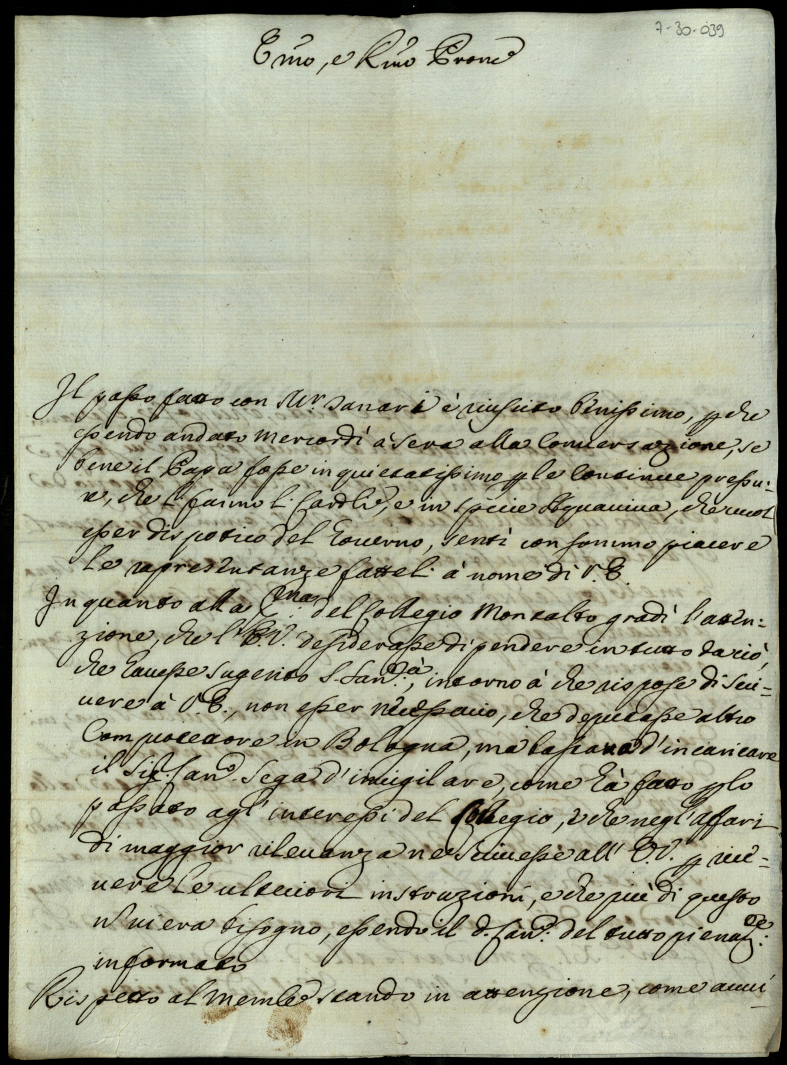 7-30-039
E͞mo, e R͞mo Prone
Il passo fatto con Mr. Sanari è riuscito benissimo, p che
essendo andato Mercordì à sera alla Conversazione, se
bene il Papa fosse inquietatissimo p le continue pressu-
re, che li fanno li Cardli, e in specie Aquaviva, che vuol
esser dispotico del Governo, sentì con sommo piacere
le rapresentanze fatteli à nome di V. E.
In quanto alla del Collegio Montalto gradì l'atten-
zione, che l'E. V. desiderasse dipendere in tutto da ciò,
che havesse sugerito S. Santà, intorno à che rispose di scri-
vere à V. E., non esser necessario, che deputasse altro
in Bologna, ma bastava d'incaricare
il Sigr Can. Sega d'invigilare, come hà fatto p lo
passato agl'interessi del Collegio, e che negl'affari
di maggior rilevanza ne scrivesse all'E. V. p rice-
vere le ulteriori instruzioni, e che più di questo
n vi era bisogno, essendo il d. Can. del tutto pienamte
informato
Rispetto al Memle stando in attenzione, come avvi-